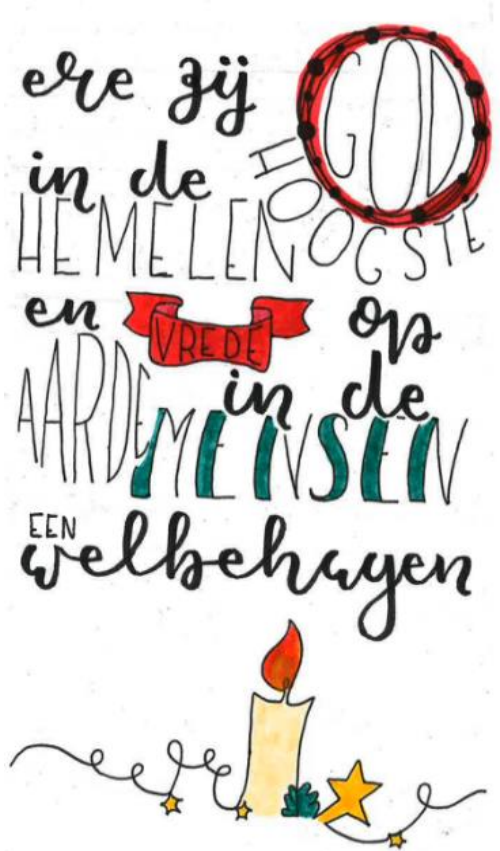 ere zij GOD
in de HOOGSTE
HEMELEN
en VREDE op
AARDE in de
MENSEN
EEN
welbehagen